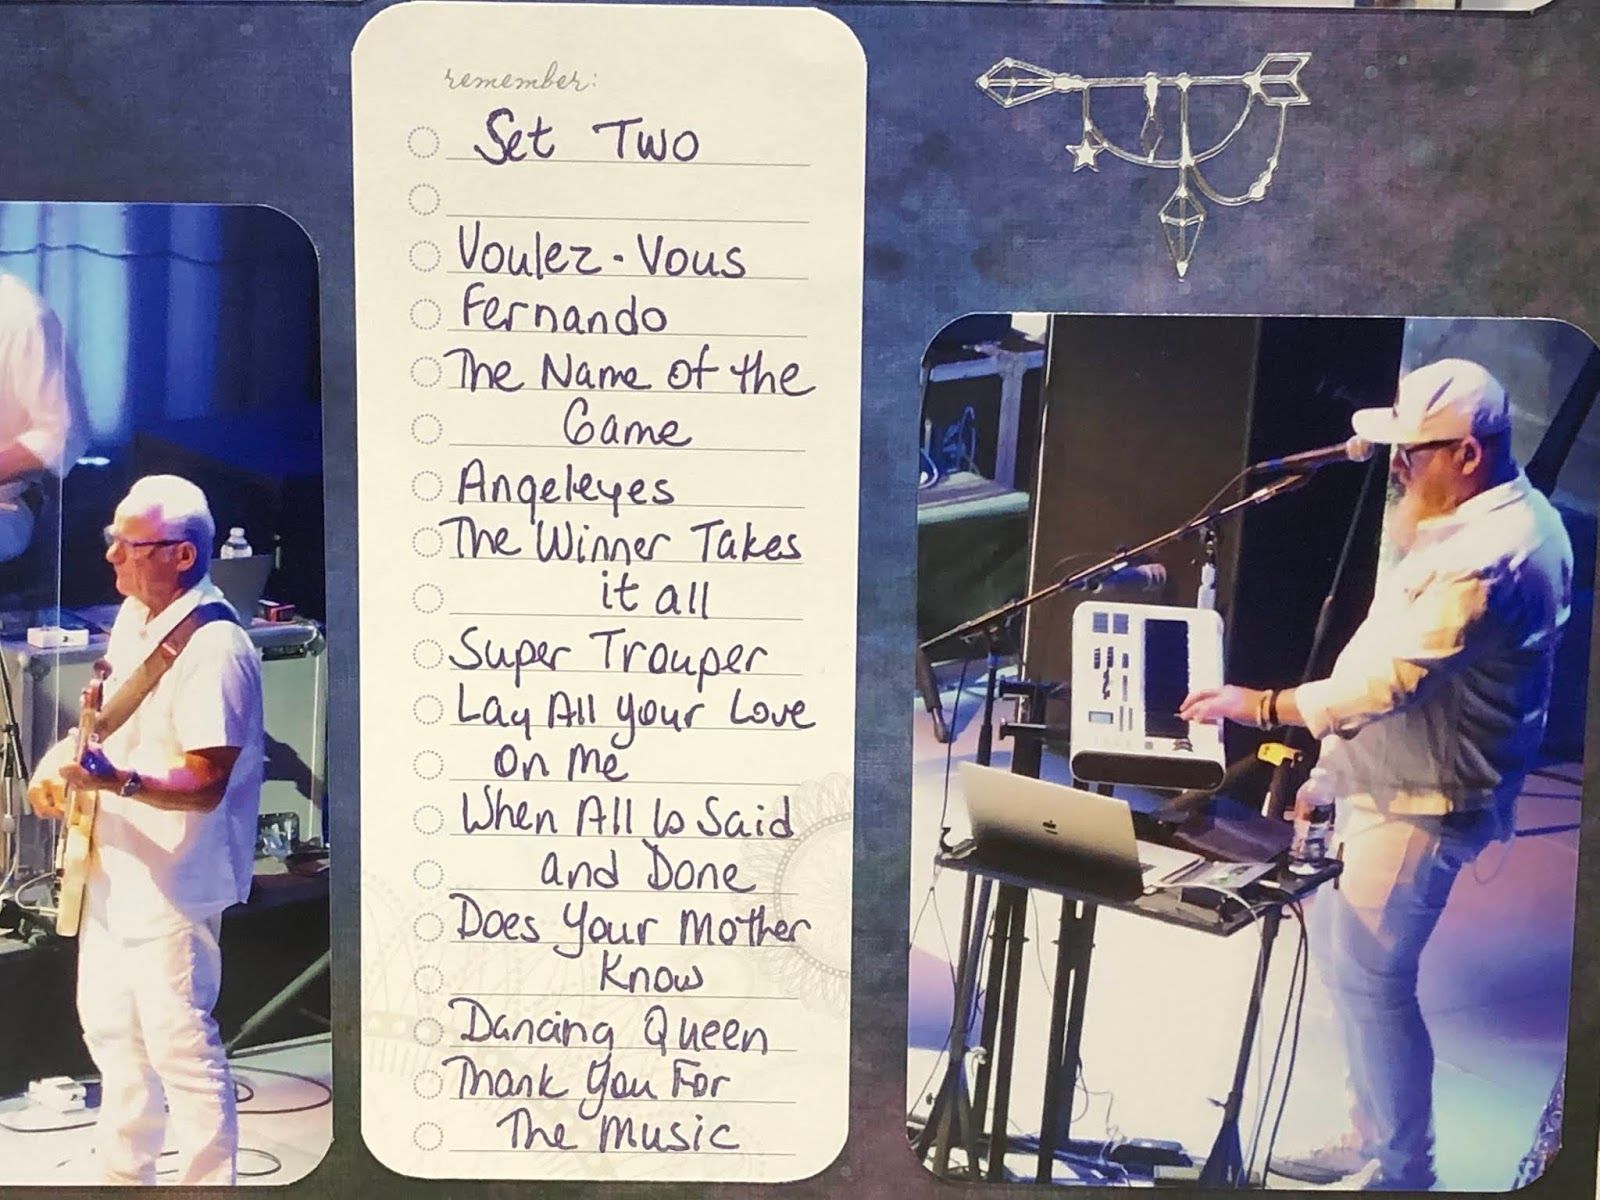 remember:
Set Two
Voulez-Vous
Fernando
The Name of the
Game
Angeleyes
The Winner Takes
it all
Super Trouper
Lay All Your Love
on Me
When All Is Said
and Done
Does Your Mother
Know
Dancing Queen
Thank You For
The Music